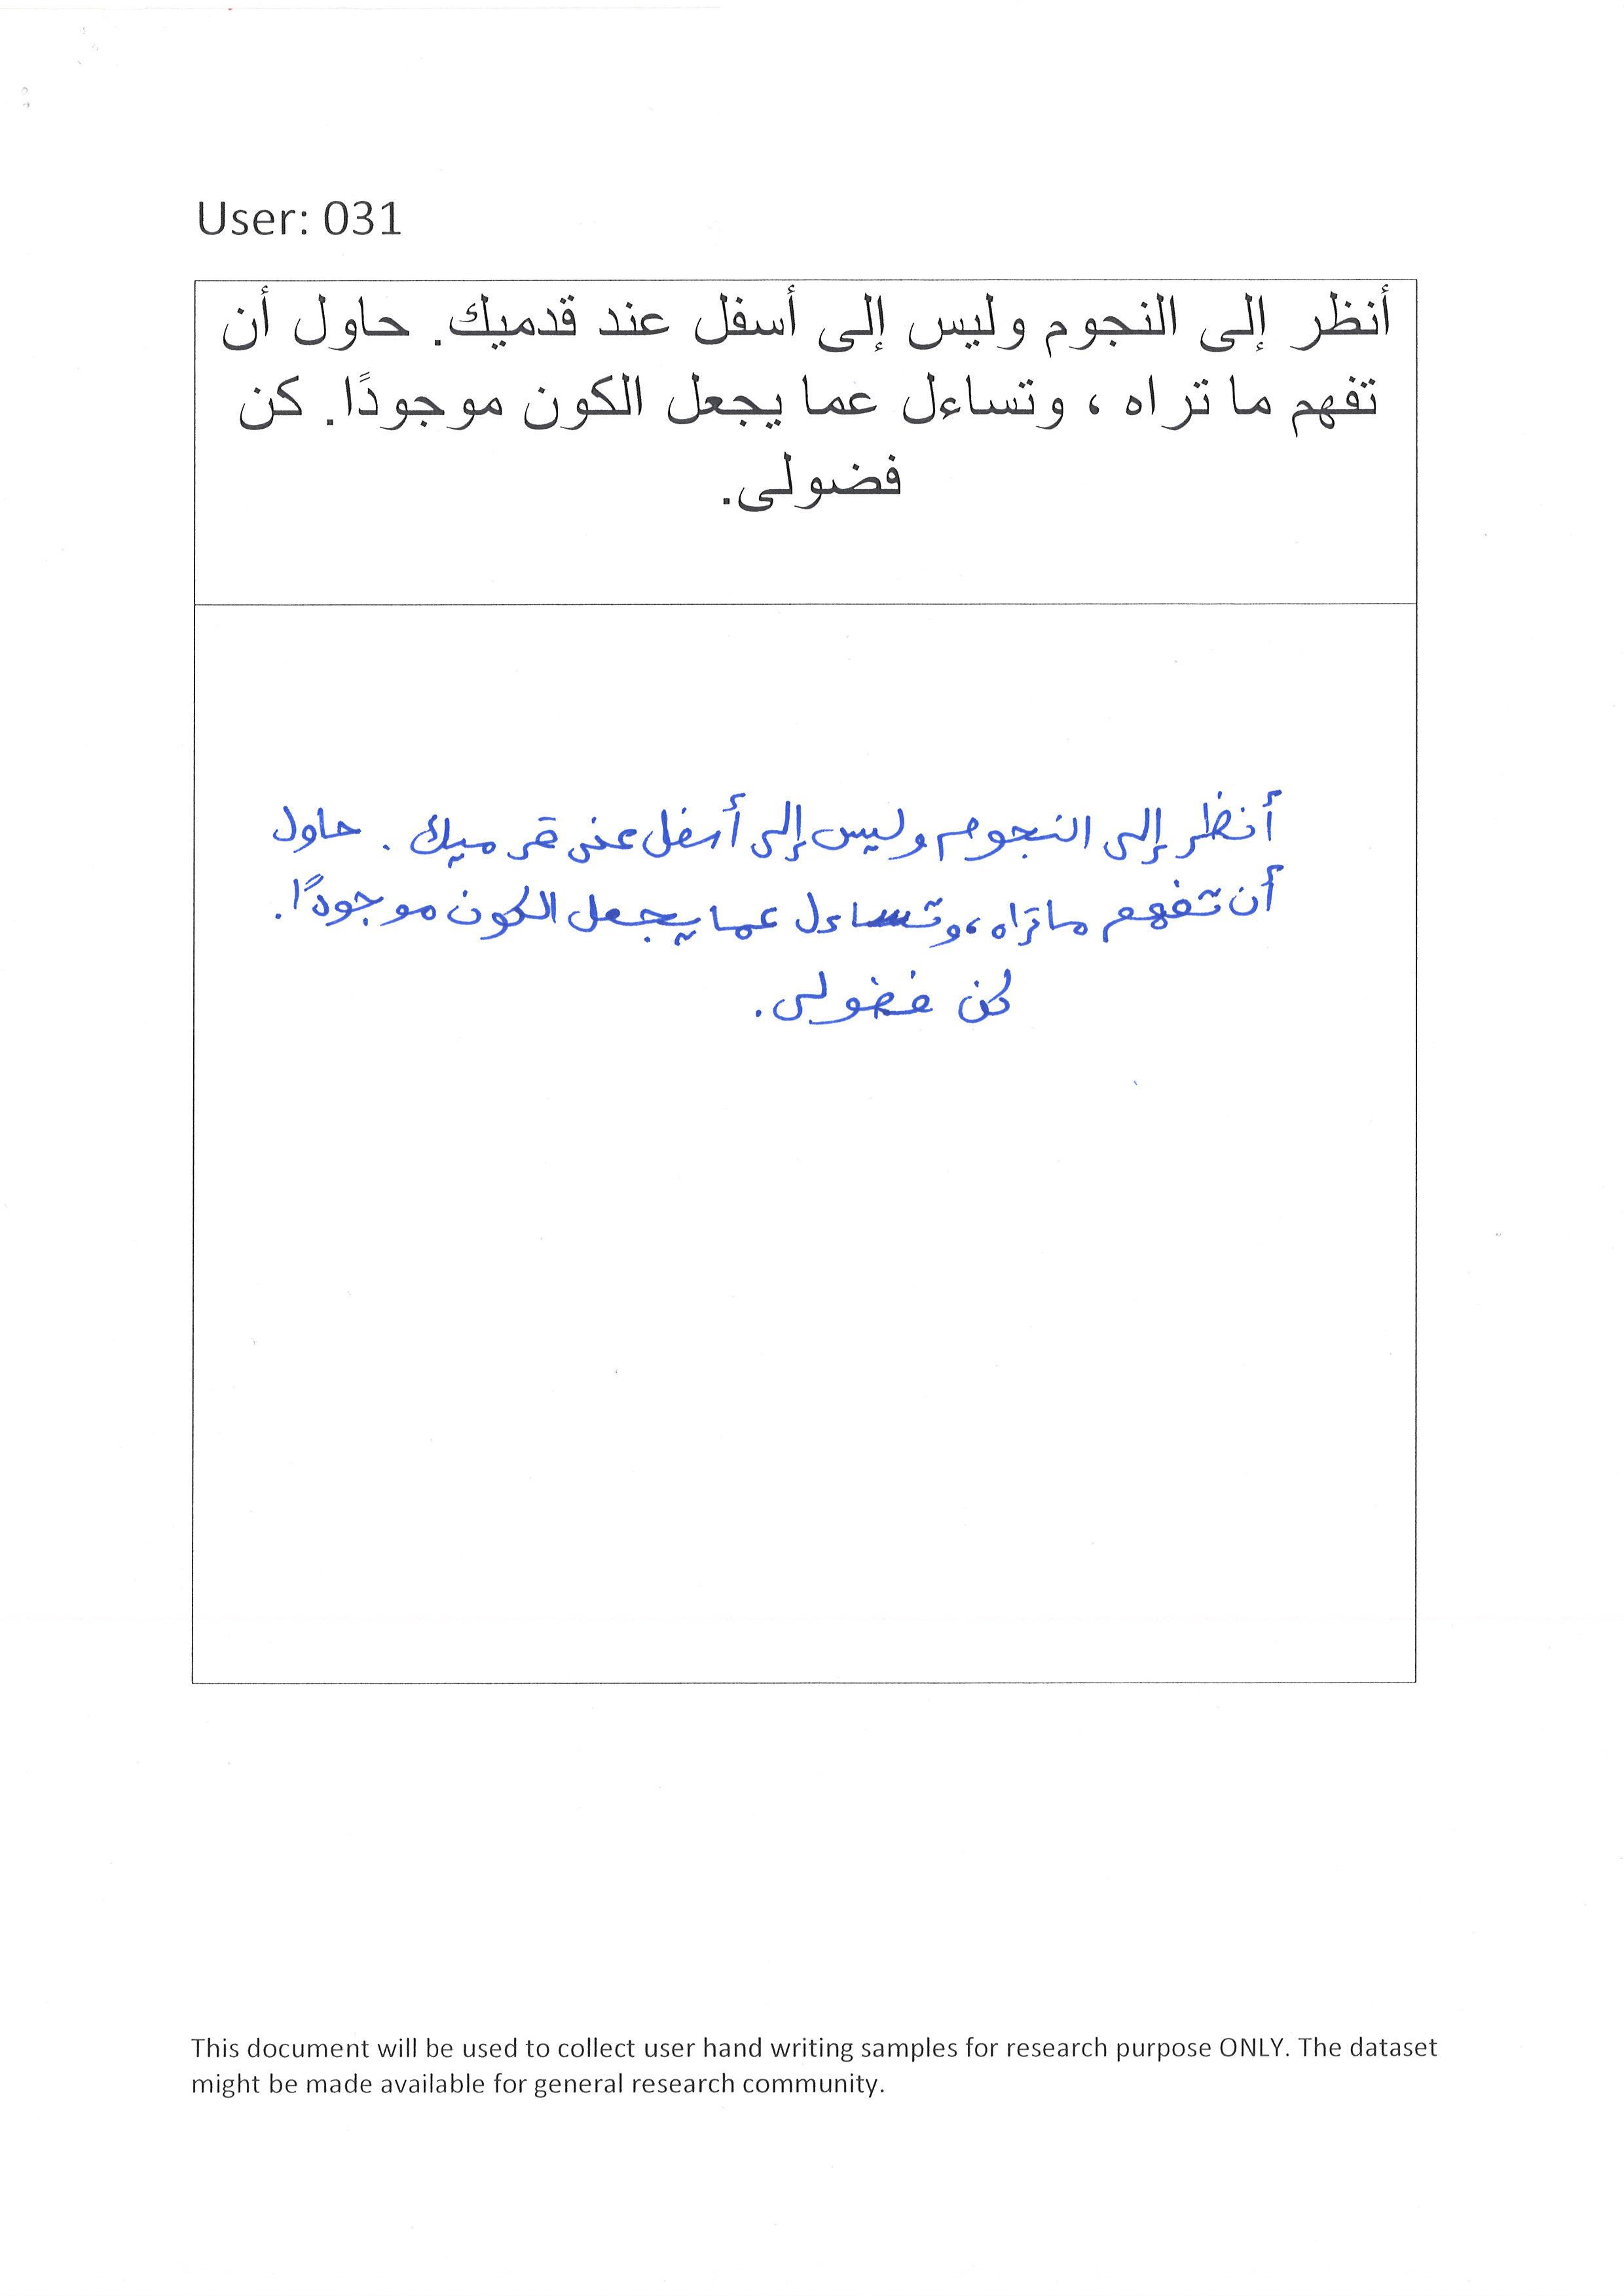 User: 031
أنظر إلى النجوم وليس إلى أسفل عند قدميك. حاول أن
تفهم ما تراه ، وتساءل عما يجعل الكون موجودًا. كن
فضولى.
أنظر إلى النجوم وليس إلى أسفل عند قدميك . حاول
أن تفهم ما تراه ، وتساءل عما يجعل الكون موجودًا.
كن فضولى.
This document will be used to collect user hand writing samples for research purpose ONLY. The dataset
might be made available for general research community.